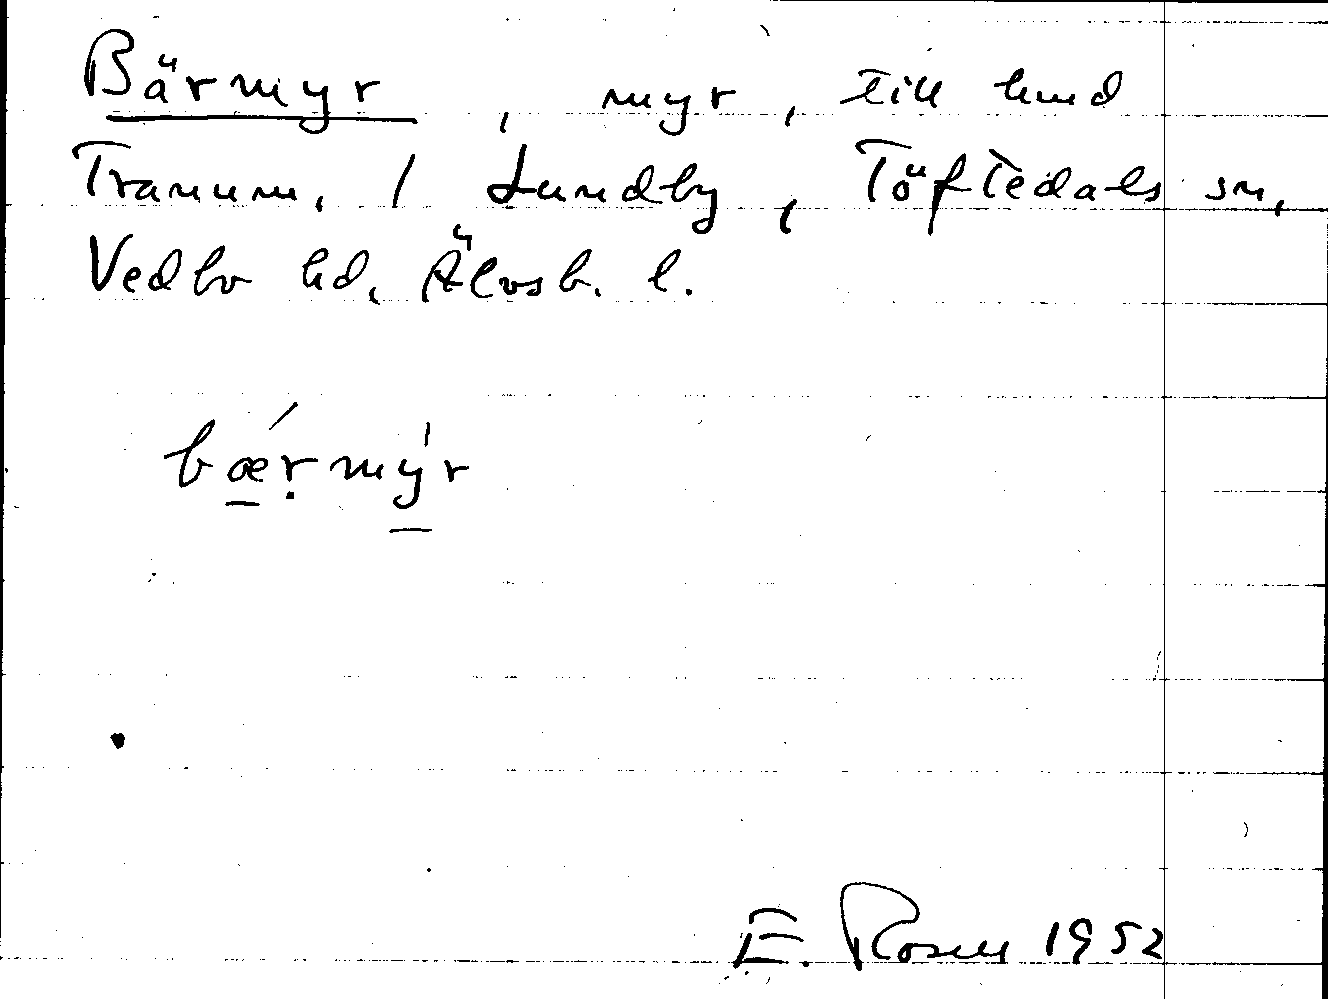 Bärmyr, myr, till hmd
Tranum, 1 Lundby, Töftedals sn,
Vedbo hd, Älvsb. l.
bǽṛmy̍r
E. Rosell 1952